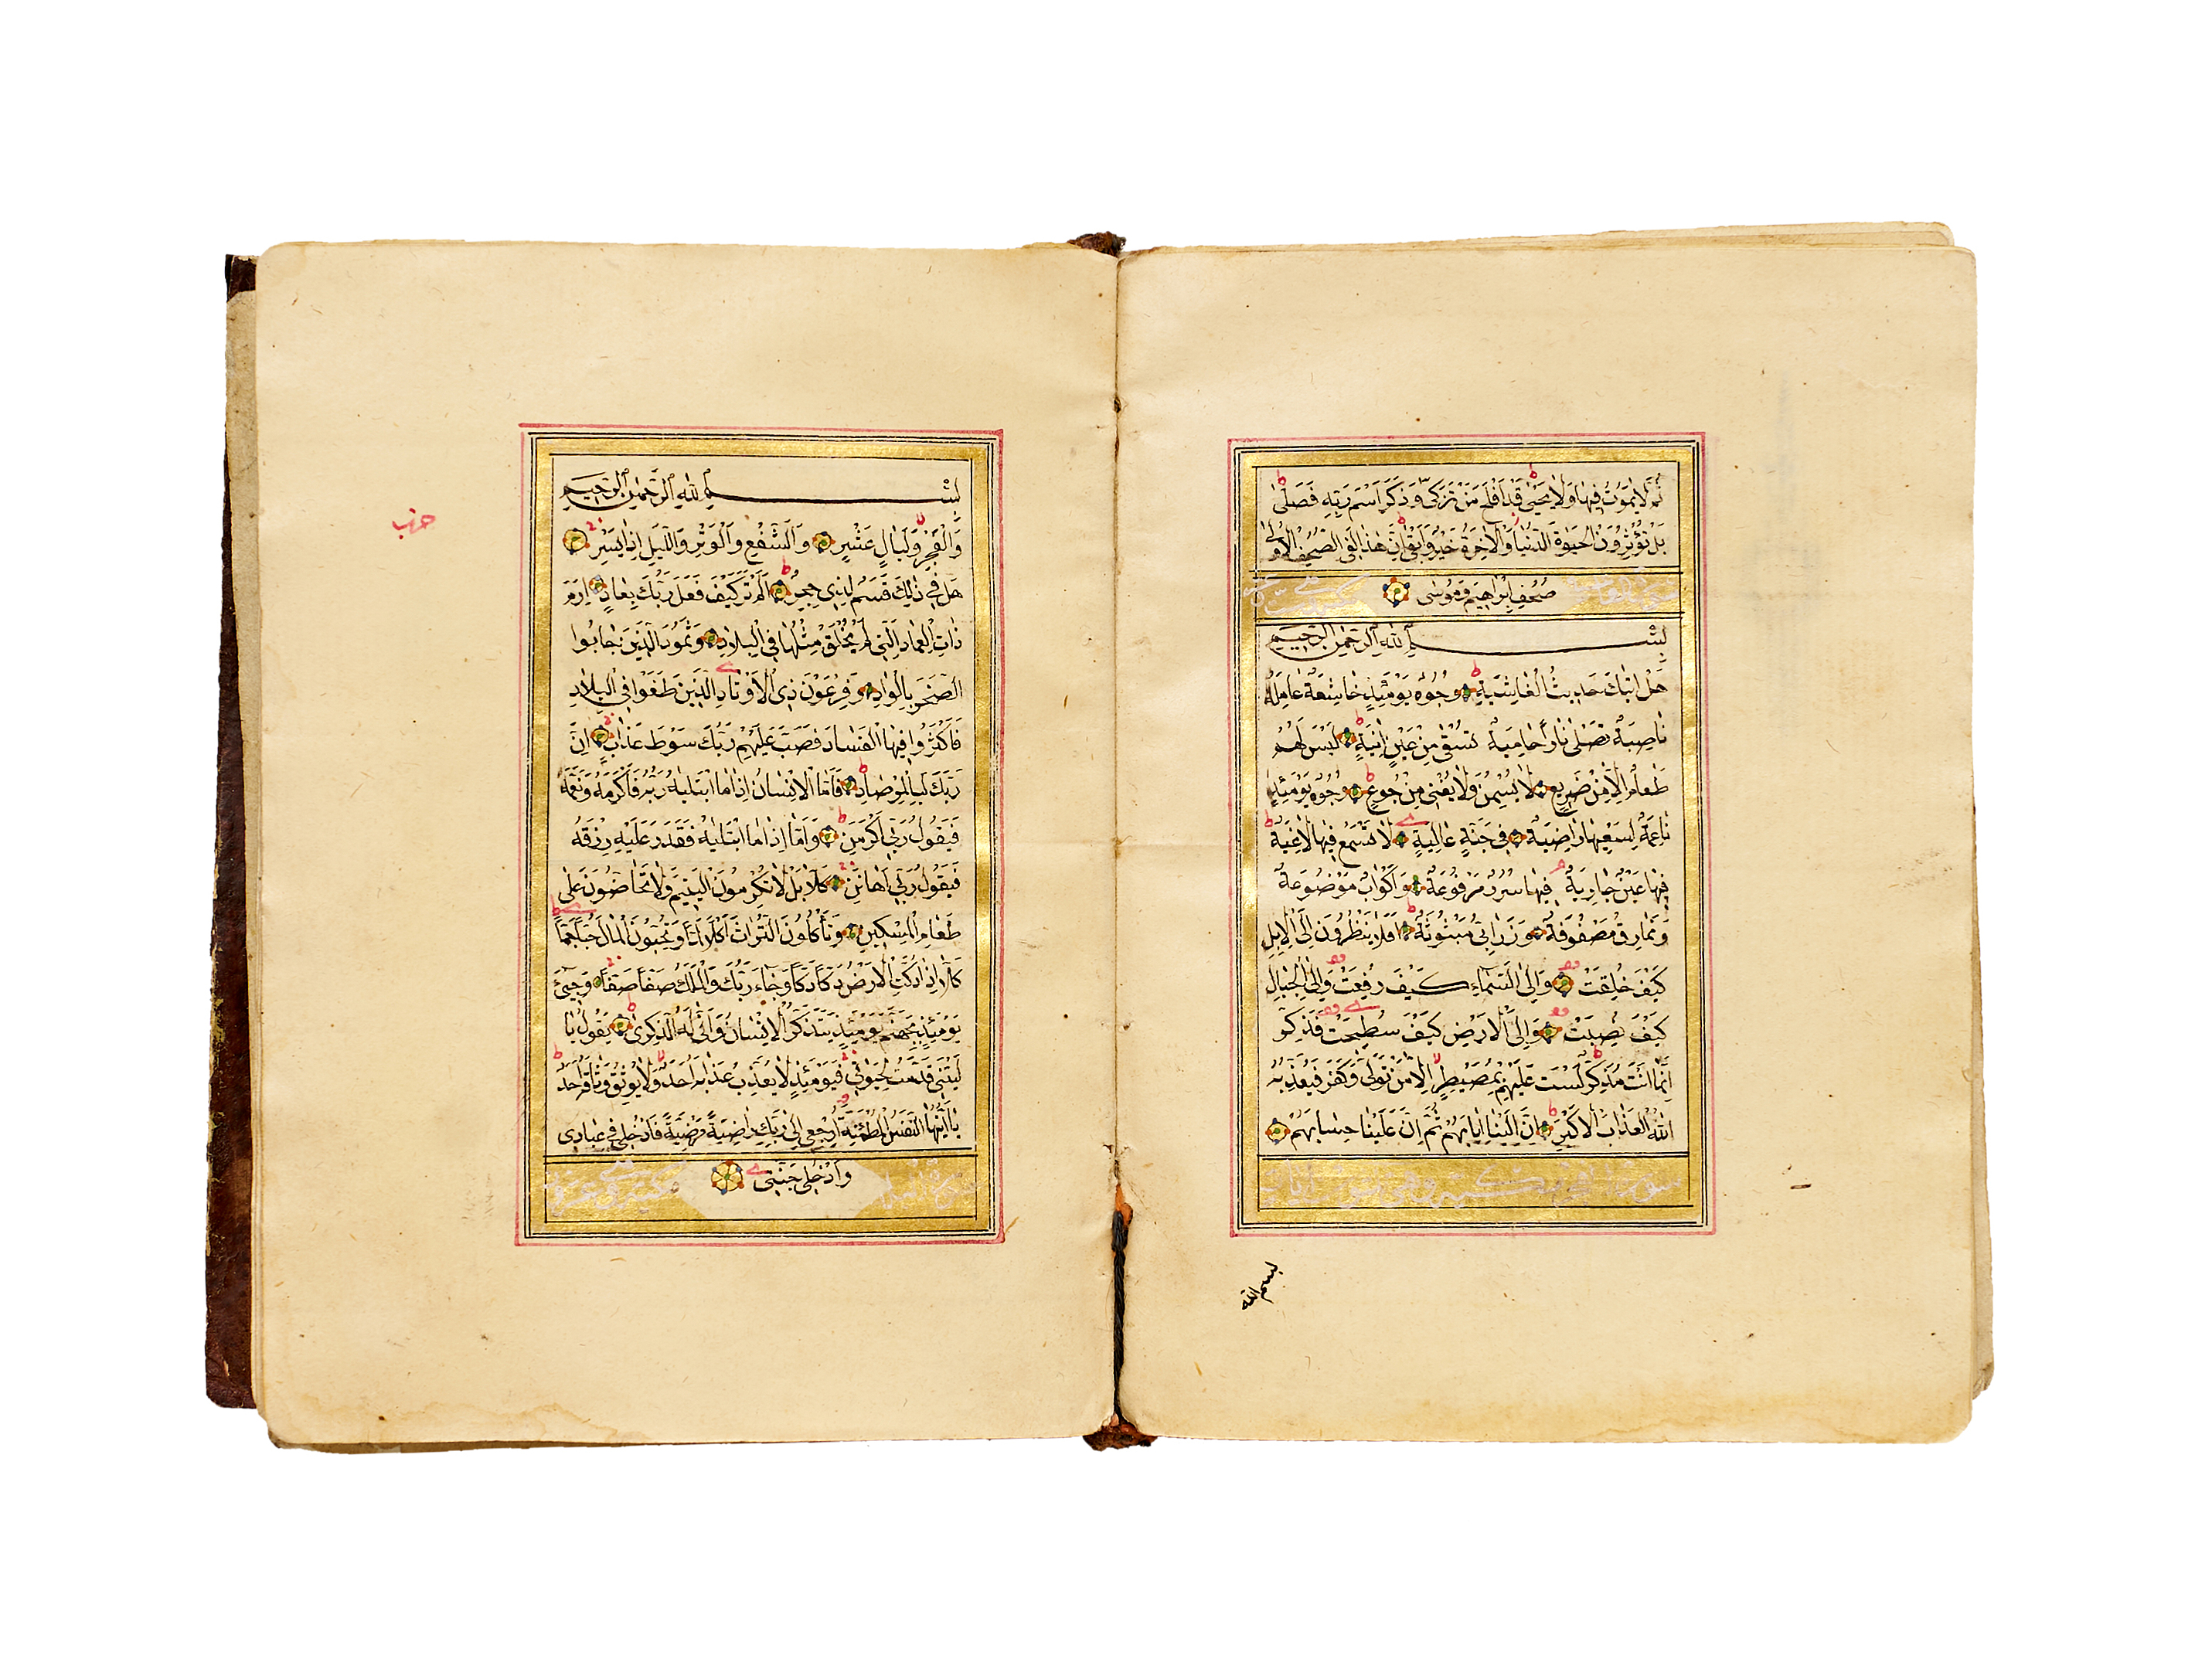 ثُمَّ لَا يَمُوتُ فِيهَا وَلَا يَحْيٰى قَدْ اَفْلَحَ مَنْ تَزَكّٰى وَذَكَرَ اسْمَ رَبِّهِ فَصَلّٰى
بَلْ تُؤْثِرُونَ الْحَيٰوةَ الدُّنْيَا وَالْاٰخِرَةُ خَيْرٌ وَاَبْقٰى اِنَّ هٰذَا لَفِى الصُّحُفِ الْاُولٰى
صُحُفِ اِبْرٰهِيمَ وَمُوسٰى
بِسْمِ اللّٰهِ الرَّحْمٰنِ الرَّحِيمِ
هَلْ اَتٰيكَ حَدِيثُ الْغَاشِيَةِ وُجُوهٌ يَوْمَئِذٍ خَاشِعَةٌ عَامِلَةٌ
نَاصِبَةٌ تَصْلٰى نَارًا حَامِيَةً تُسْقٰى مِنْ عَيْنٍ اٰنِيَةٍ لَيْسَ لَهُمْ
طَعَامٌ اِلَّا مِنْ ضَرِيعٍ لَا يُسْمِنُ وَلَا يُغْنِى مِنْ جُوعٍ وُجُوهٌ يَوْمَئِذٍ
نَاعِمَةٌ لِسَعْيِهَا رَاضِيَةٌ فِى جَنَّةٍ عَالِيَةٍ لَا تَسْمَعُ فِيهَا لَاغِيَةً
فِيهَا عَيْنٌ جَارِيَةٌ فِيهَا سُرُرٌ مَرْفُوعَةٌ وَاَكْوَابٌ مَوْضُوعَةٌ
وَنَمَارِقُ مَصْفُوفَةٌ وَزَرَابِىُّ مَبْثُوثَةٌ اَفَلَا يَنْظُرُونَ اِلَى الْاِبِلِ
كَيْفَ خُلِقَتْ وَاِلَى السَّمَاءِ كَيْفَ رُفِعَتْ وَاِلَى الْجِبَالِ
كَيْفَ نُصِبَتْ وَاِلَى الْاَرْضِ كَيْفَ سُطِحَتْ فَذَكِّرْ
اِنَّمَا اَنْتَ مُذَكِّرٌ لَسْتَ عَلَيْهِمْ بِمُصَيْطِرٍ اِلَّا مَنْ تَوَلّٰى وَكَفَرَ فَيُعَذِّبُهُ
اللّٰهُ الْعَذَابَ الْاَكْبَرَ اِنَّ اِلَيْنَا اِيَابَهُمْ ثُمَّ اِنَّ عَلَيْنَا حِسَابَهُمْ
بسم الله
حزب
بِسْمِ اللّٰهِ الرَّحْمٰنِ الرَّحِيمِ
وَالْفَجْرِ وَلَيَالٍ عَشْرٍ وَالشَّفْعِ وَالْوَتْرِ وَالَّيْلِ اِذَا يَسْرِ
هَلْ فِى ذٰلِكَ قَسَمٌ لِذِى حِجْرٍ اَلَمْ تَرَ كَيْفَ فَعَلَ رَبُّكَ بِعَادٍ اِرَمَ
ذَاتِ الْعِمَادِ الَّتِى لَمْ يُخْلَقْ مِثْلُهَا فِى الْبِلَادِ وَثَمُودَ الَّذِينَ جَابُوا
الصَّخْرَ بِالْوَادِ وَفِرْعَوْنَ ذِى الْاَوْتَادِ الَّذِينَ طَغَوْا فِى الْبِلَادِ
فَاَكْثَرُوا فِيهَا الْفَسَادَ فَصَبَّ عَلَيْهِمْ رَبُّكَ سَوْطَ عَذَابٍ اِنَّ
رَبَّكَ لَبِالْمِرْصَادِ فَاَمَّا الْاِنْسَانُ اِذَا مَا ابْتَلٰيهُ رَبُّهُ فَاَكْرَمَهُ وَنَعَّمَهُ
فَيَقُولُ رَبِّى اَكْرَمَنِ وَاَمَّا اِذَا مَا ابْتَلٰيهُ فَقَدَرَ عَلَيْهِ رِزْقَهُ
فَيَقُولُ رَبِّى اَهَانَنِ كَلَّا بَلْ لَا تُكْرِمُونَ الْيَتِيمَ وَلَا تَحَاضُّونَ عَلٰى
طَعَامِ الْمِسْكِينِ وَتَأْكُلُونَ التُّرَاثَ اَكْلًا لَمًّا وَتُحِبُّونَ الْمَالَ حُبًّا جَمًّا
كَلَّا اِذَا دُكَّتِ الْاَرْضُ دَكًّا دَكًّا وَجَاءَ رَبُّكَ وَالْمَلَكُ صَفًّا صَفًّا وَجِىءَ
يَوْمَئِذٍ بِجَهَنَّمَ يَوْمَئِذٍ يَتَذَكَّرُ الْاِنْسَانُ وَاَنّٰى لَهُ الذِّكْرٰى يَقُولُ يَا
لَيْتَنِى قَدَّمْتُ لِحَيَوتِى فَيَوْمَئِذٍ لَا يُعَذِّبُ عَذَابَهُ اَحَدٌ وَلَا يُوثِقُ وَثَاقَهُ اَحَدٌ
يَا اَيَّتُهَا النَّفْسُ الْمُطْمَئِنَّةُ ارْجِعِى اِلٰى رَبِّكِ رَاضِيَةً مَرْضِيَّةً فَادْخُلِى فِى عِبَادِى
وَادْخُلِى جَنَّتِى